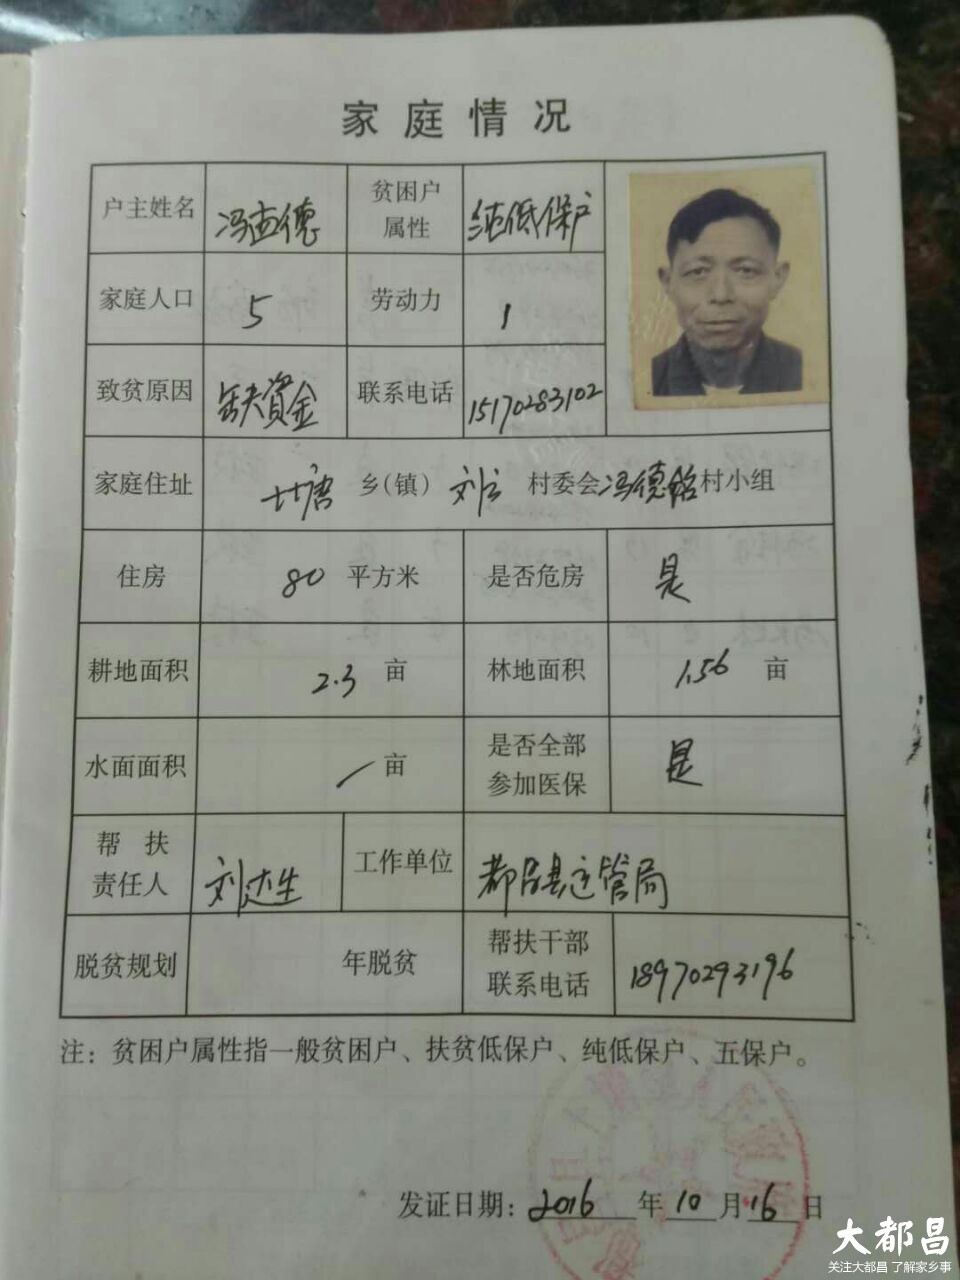 家庭情况
户主姓名 冯直德 贫困户属性 纯低保户
家庭人口 5 劳动力 1
致贫原因 缺资金 联系电话 15170283102
家庭住址 塘 乡(镇) 刘云 村委会 冯德铭 村小组
住房 80 平方米 是否危房 是
耕地面积 2.3 亩 林地面积 1.56 亩
水面面积 / 亩 是否全部参加医保 是
帮扶责任人 刘达生 工作单位 都昌县运管局
脱贫规划 年脱贫 帮扶干部联系电话 18970293196
注：贫困户属性指一般贫困户、扶贫低保户、纯低保户、五保户。
发证日期：2016年10月16日
大都昌
关注大都昌 了解家乡事